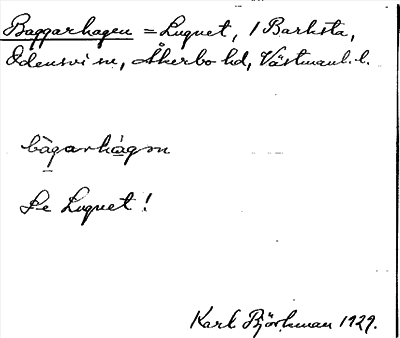 Baggarhagen = Lugnet, 1 Barksta,
Odensvi sn, Åkerbo hd, Västmanl. l.
bàgarhàgan
Se Lugnet!
Karl Björkman 1929.